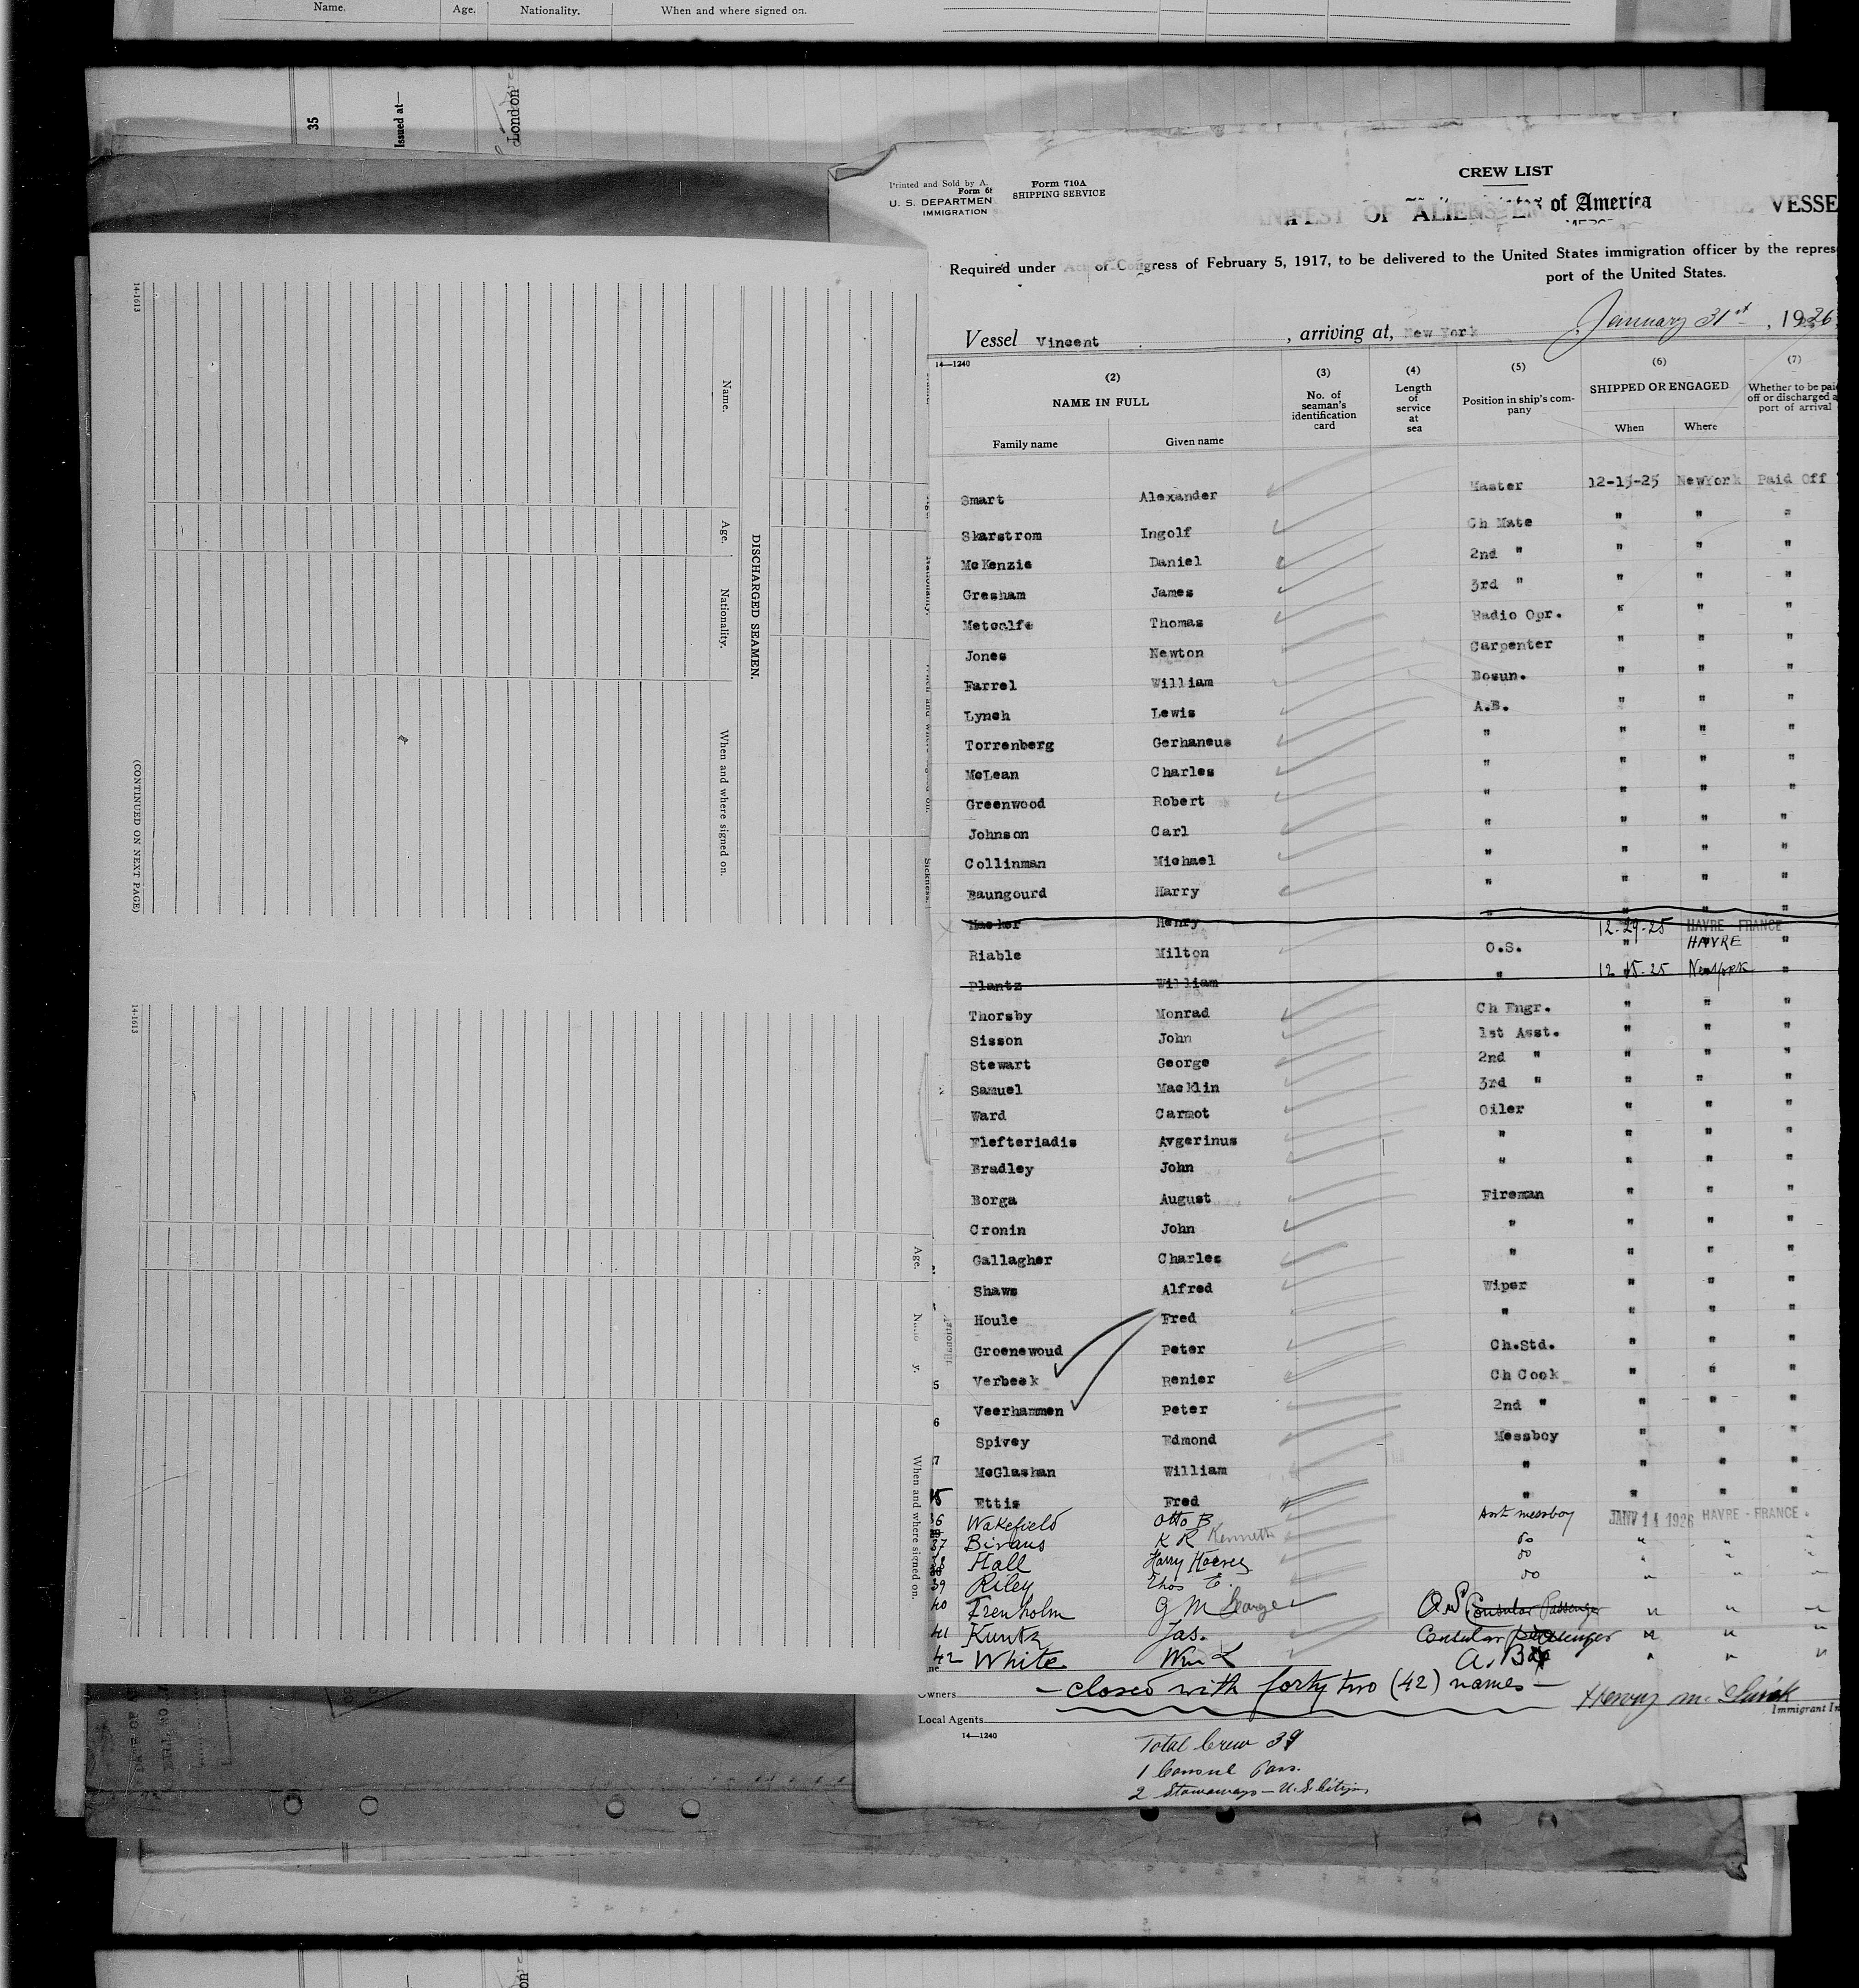 Name. Age. Nationality. When and where signed on.
35 Issued at— London
Printed and Sold by A.
Form 710A
SHIPPING SERVICE
U. S. DEPARTMEN
IMMIGRATION
CREW LIST
of America
ALIENS VESSE
Required under Act of Congress of February 5, 1917, to be delivered to the United States immigration officer by the repres
port of the United States.
Vessel Vincent , arriving at, New York , January 31st , 1926
14—1240
(2) (3) (4) (5) (6) (7)
NAME IN FULL
Family name Given name
No. of seaman's identification card
Length of service at sea
Position in ship's company
SHIPPED OR ENGAGED
When Where
Whether to be paid off or discharged a port of arrival
Smart Alexander Master 12-15-25 NewYork Paid Off
Skarstrom Ingolf Ch Mate " " "
McKenzie Daniel 2nd " " " "
Gresham James 3rd " " " "
Metcalfe Thomas Radio Opr. " " "
Jones Newton Carpenter " " "
Farrel William Bosun. " " "
Lynch Lewis A.B. " " "
Torrenberg Gerhaneus " " " "
McLean Charles " " " "
Greenwood Robert " " " "
Johnson Carl " " " "
Collinman Michael " " " "
Baungourd Harry " " " "
Henry " 12-29-25 HAVRE - FRANCE "
Riable Milton O.S. " HAVRE "
Plantz William " 12 15-25 New York "
Thorsby Monrad Ch Engr. " " "
Sisson John 1st Asst. " " "
Stewart George 2nd " " " "
Samuel Macklin 3rd " " " "
Ward Carmot Oiler " " "
Elefteriadis Avgerinus " " " "
Bradley John " " " "
Borga August Fireman " " "
Cronin John " " " "
Gallagher Charles " " " "
Shaws Alfred Wiper " " "
Houle Fred " " " "
Groenewoud Peter Ch.Std. " " "
Verbeek Renier Ch Cook " " "
Veerhammen Peter 2nd " " " "
Spivey Edmond Messboy " " "
McGlashan William " " " "
Ettis Fred " " " "
36 Wakefield Otto B. Asst messboy JAN 14 1926 HAVRE - FRANCE.
37 Bivans K R Kenneth do " " "
38 Hall Harry do " " "
39 Riley Thos E. do " " "
40 Trenholm G M George Consular Passenger " " "
41 Kuntz Jas. Consular passenger " " "
42 White Wm L A.B. " " "
Owners
— closed with forty two (42) names —
Local Agents
Immigrant In
14—1240
Total Crew 39
1 Consul Pass.
2 Stowaways — U.S. Citizn
14-1613
DISCHARGED SEAMEN.
Name. Age. Nationality. When and where signed on.
(CONTINUED ON NEXT PAGE)
14-1613
Age.
When and where signed on.
Sickness.